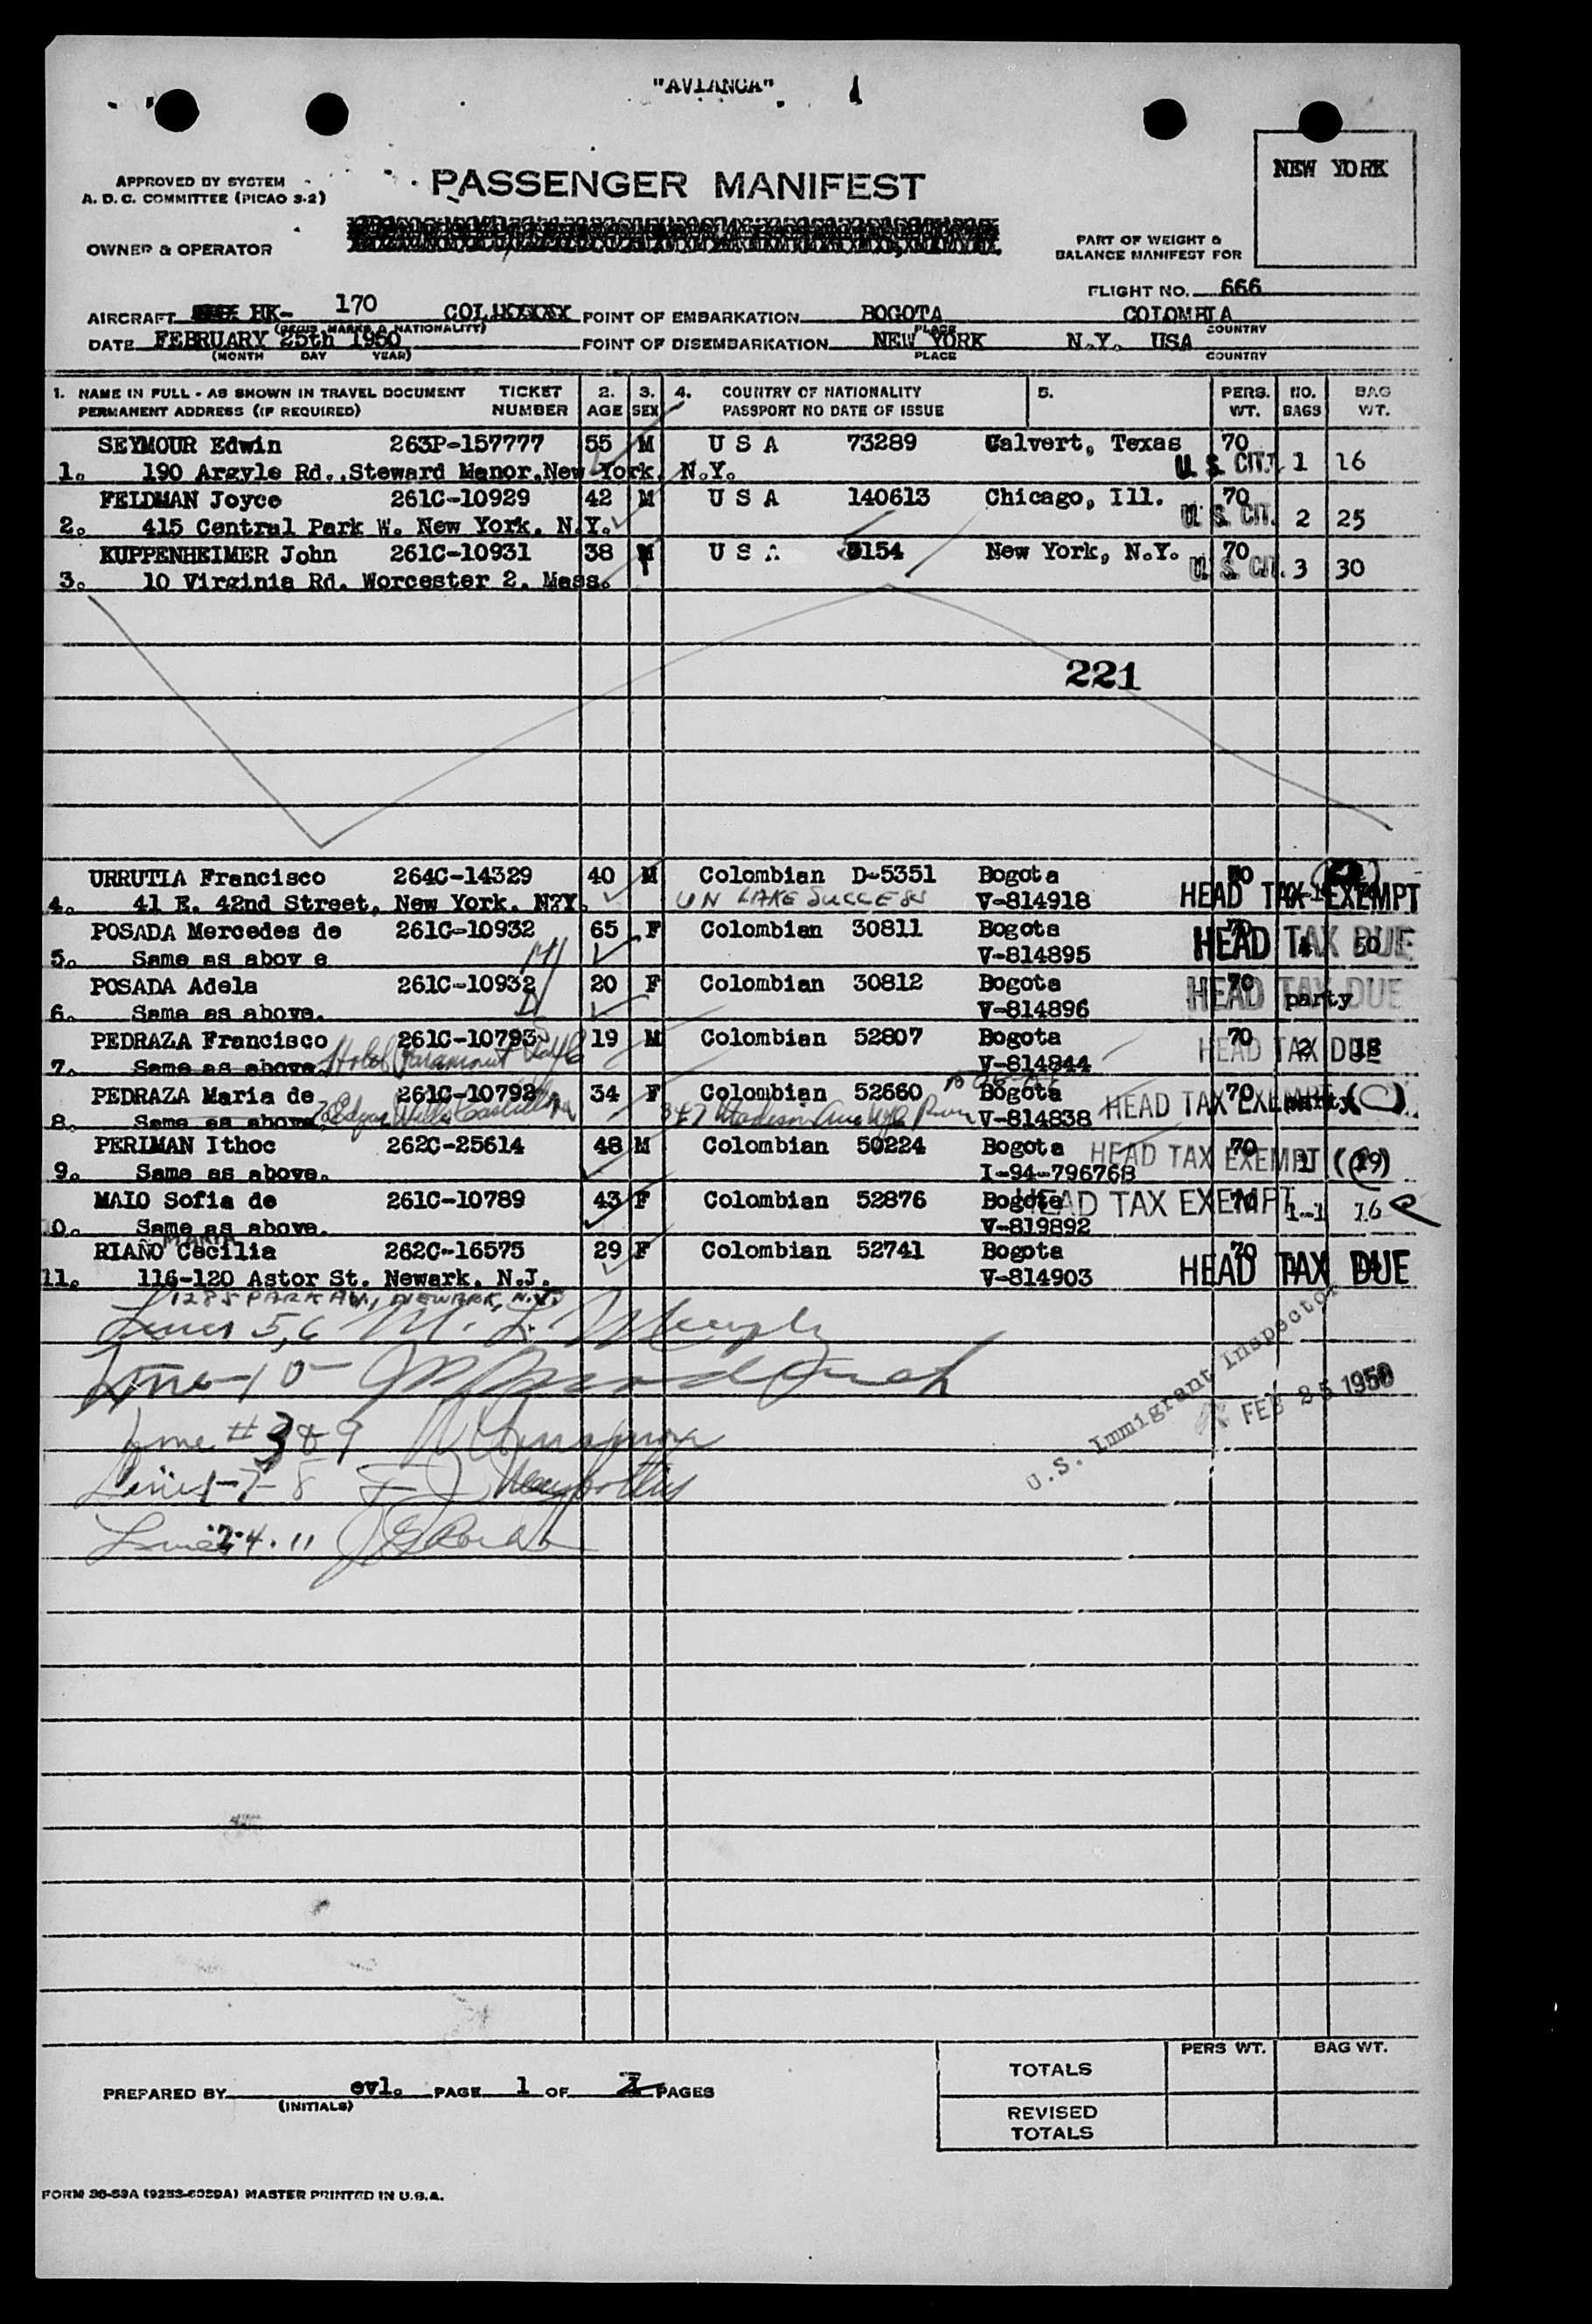 "AVIANCA" 1
NEW YORK
APPROVED BY SYSTEM
A. D. C. COMMITTEE (PICAO 3-2)
PASSENGER MANIFEST
OWNER & OPERATOR
PART OF WEIGHT &
BALANCE MANIFEST FOR
FLIGHT NO. 666
AIRCRAFT HK- 170 POINT OF EMBARKATION BOGOTA COLOMBIA
(REGIS. MARKS & NATIONALITY) PLACE COUNTRY
DATE FEBRUARY 25th 1950 POINT OF DISEMBARKATION NEW YORK N.Y. USA
(MONTH DAY YEAR) PLACE COUNTRY
1. NAME IN FULL - AS SHOWN IN TRAVEL DOCUMENT TICKET 2. 3. 4. COUNTRY OF NATIONALITY 5. PERS. NO. BAG
PERMANENT ADDRESS (IF REQUIRED) NUMBER AGE SEX PASSPORT NO DATE OF ISSUE WT. BAGS WT.
SEYMOUR Edwin 263P-157777 55 M U S A 73289 Calvert, Texas 70
1. 190 Argyle Rd., Steward Manor, New York, N.Y. U. S. CIT. 1 16
FELDMAN Joyce 261C-10929 42 M U S A 140613 Chicago, Ill. 70
2. 415 Central Park W. New York, N.Y. U. S. CIT. 2 25
KUPPENHEIMER John 261C-10931 38 M U S A 5154 New York, N.Y. 70
3. 10 Virginia Rd. Worcester 2, Mass. U. S. CIT. 3 30
221
URRUTIA Francisco 264C-14329 40 M Colombian D-5351 Bogota
4. 41 E. 42nd Street, New York. N?Y. UN LAKE SUCCESS V-814918 HEAD TAX EXEMPT
POSADA Mercedes de 261C-10932 65 F Colombian 30811 Bogota 70
5. Same as abov e V-814895 HEAD TAX DUE
POSADA Adela 261C-10932 20 F Colombian 30812 Bogota 70
6. Same as above. V-814896 HEAD TAX DUE party
PEDRAZA Francisco 261C-10793 19 M Colombian 52807 Bogota 70
7. Same as above Hotel Paramount V-814844 HEAD TAX DUE 2 18
PEDRAZA Maria de 261C-10792 34 F Colombian 52660 Bogota 70
8. Same as above. 347 Madison Ave V-814838 HEAD TAX EXEMPT party
PERIMAN Ithoc 262C-25614 48 M Colombian 50224 Bogota 70
9. Same as above. I-94-796768 HEAD TAX EXEMPT 1 (19)
MAIO Sofia de 261C-10789 43 F Colombian 52876 Bogota 70
0. Same as above. V-819892 HEAD TAX EXEMPT 1-1 16
MARIA
RIAÑO Cecilia 262C-16575 29 F Colombian 52741 Bogota 70
11. 116-120 Astor St. Newark. N.J. V-814903 HEAD TAX DUE
1285 PARK AV., NEWARK, N.J.
Lines 5,6 M. L. Murphy
Line-10-
Line #3&9
Lines 1-7-8 F J
Lines 2.4.11
U.S. Immigrant Inspector
FEB 25 1950
PERS WT. BAG WT.
TOTALS
PREPARED BY evl. PAGE 1 OF PAGES
(INITIALS)
REVISED
TOTALS
FORM 36-53A (9253-6029A) MASTER PRINTED IN U.S.A.